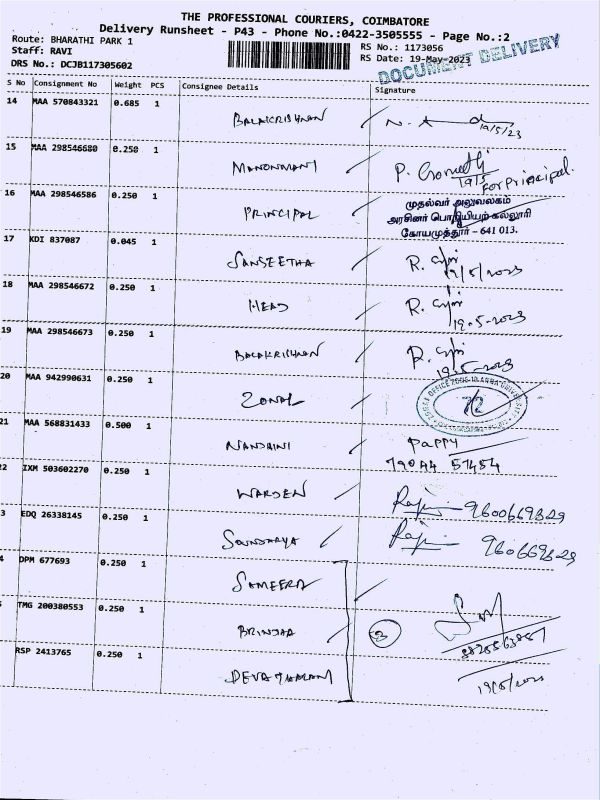 THE PROFESSIONAL COURIERS, COIMBATORE
Delivery Runsheet - P43 - Phone No.:0422-3505555 - Page No.:2
Route: BHARATHI PARK 1
RS No.: 1173056
Staff: RAVI
RS Date: 19-May-2023
DRS No.: DCJB117305602
DOCUMENT DELIVERY
S No Consignment No Weight PCS Consignee Details Signature
14 MAA 570843321 0.685 1
BALAKRISHNAN
19/5/23
15 MAA 298546680 0.250 1
MANONMANI P.
19/5 For Principal.
16 MAA 298546586 0.250 1
PRINCIPAL
முதல்வர் அலுவலகம்
அரசினர் பொறியியற் கல்லூரி
கோயமுத்தூர் – 641 013.
17 KDI 837087 0.045 1
SANGEETHA R.
19/5/2023
18 MAA 298546672 0.250 1
HEAD R.
19-5-2023
19 MAA 298546673 0.250 1
BALAKRISHNAN R.
19-5-2023
20 MAA 942990631 0.250 1
ZONAL
21 MAA 568831433 0.500 1
NANDHINI Pappy
79044 57454
22 IXM 503602270 0.250 1
WARDEN 9600669329
3 EDQ 26338145 0.250 1
SOUNDARYA 960669329
4 DPM 677693 0.250 1
SAMEERA
TMG 200380553 0.250 1
BRINDHA 3
RSP 2413765 0.250 1
DEVADHARANI